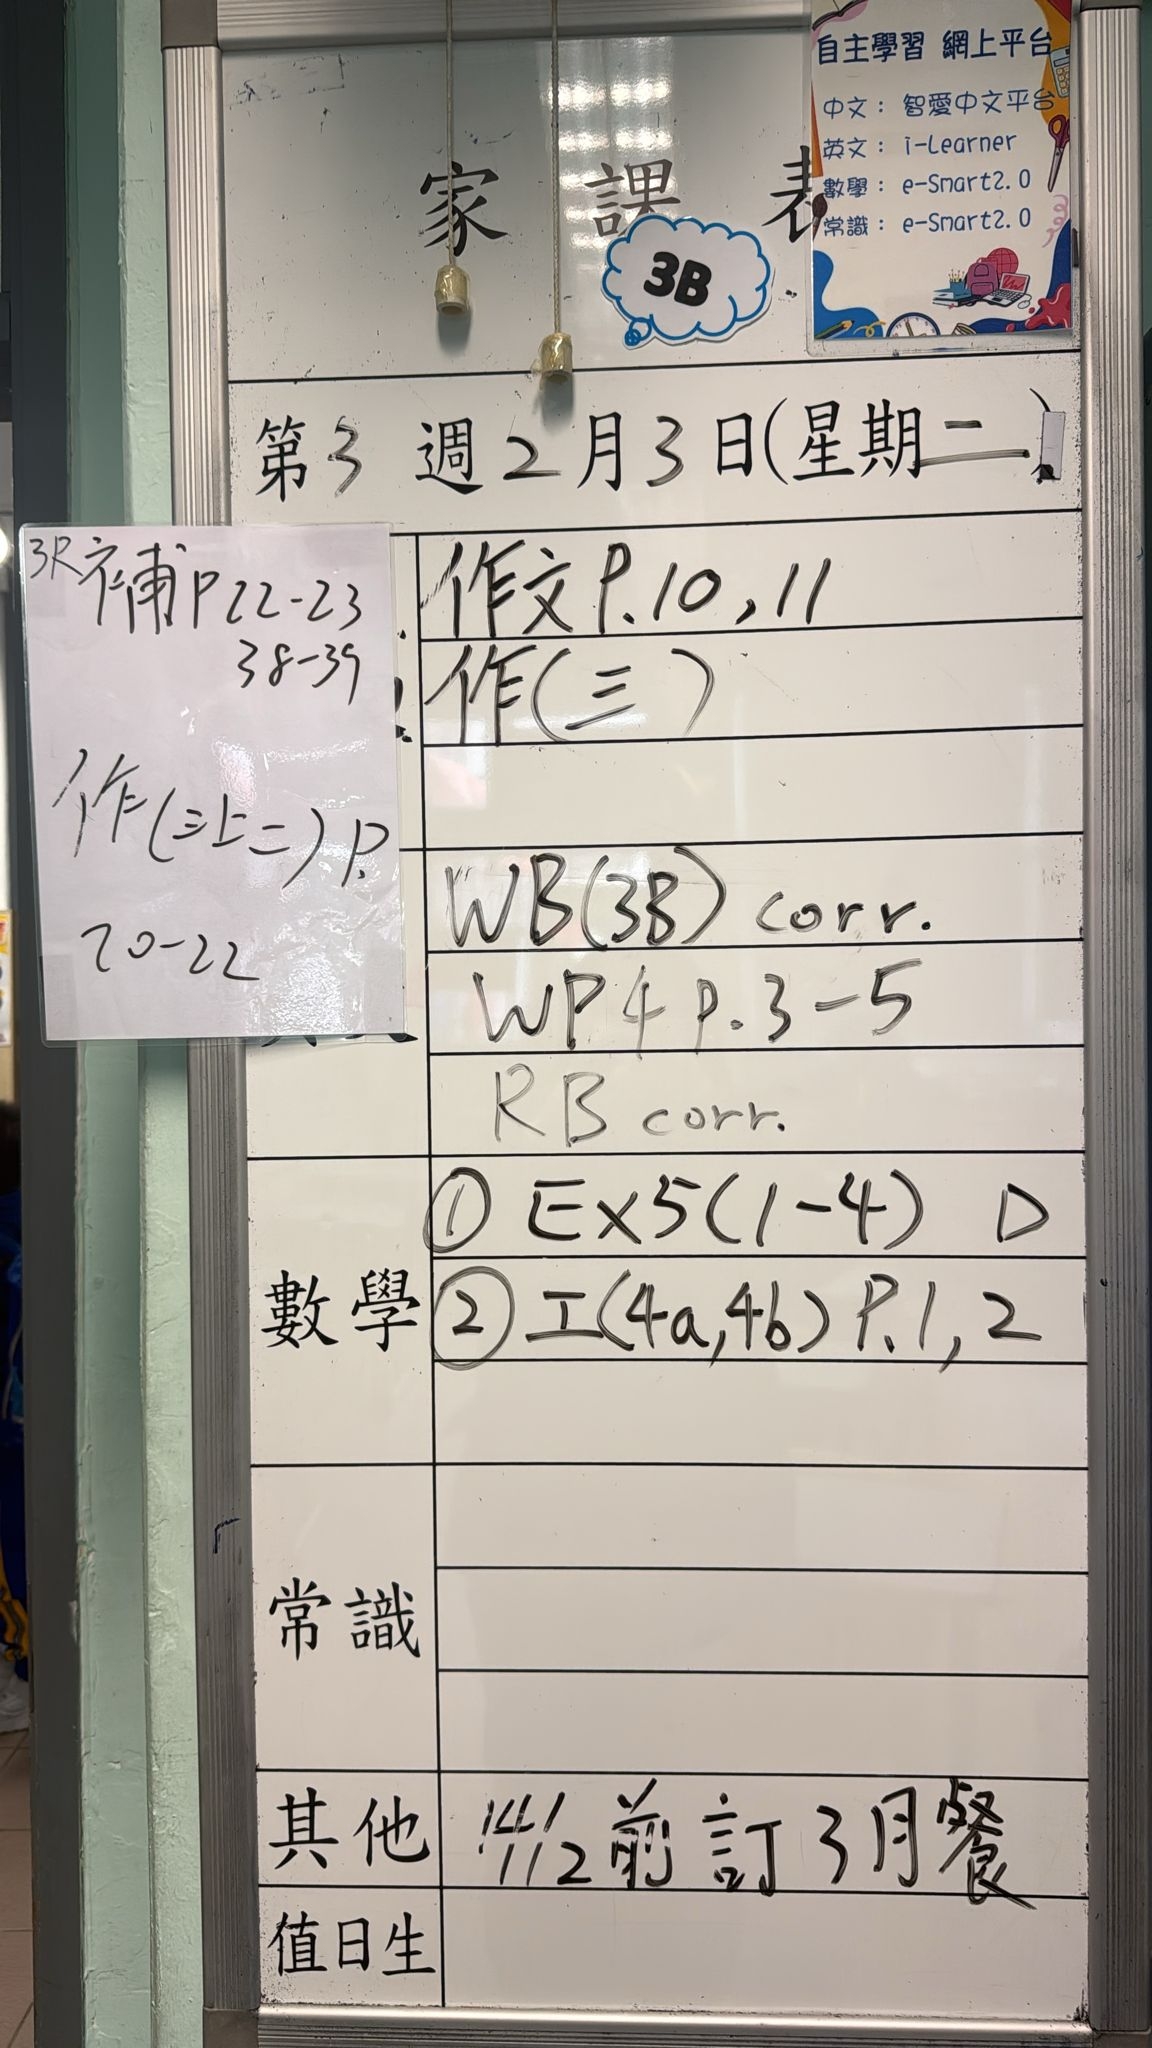 家課表
3B
自主學習 網上平台
中文： 智愛中文平台
英文： i-Learner
數學： e-Smart2.0
常識： e-Smart2.0
第3週2月3日(星期二)
3R補P22-23
38-39
作(三上二)P.
20-22
作文P.10,11
作(三)
WB(3B) corr.
WP4 P.3-5
RB corr.
數學
① Ex5(1-4) D
② 工(4a,4b) P.1,2
常識
其他
前訂3月餐
值日生